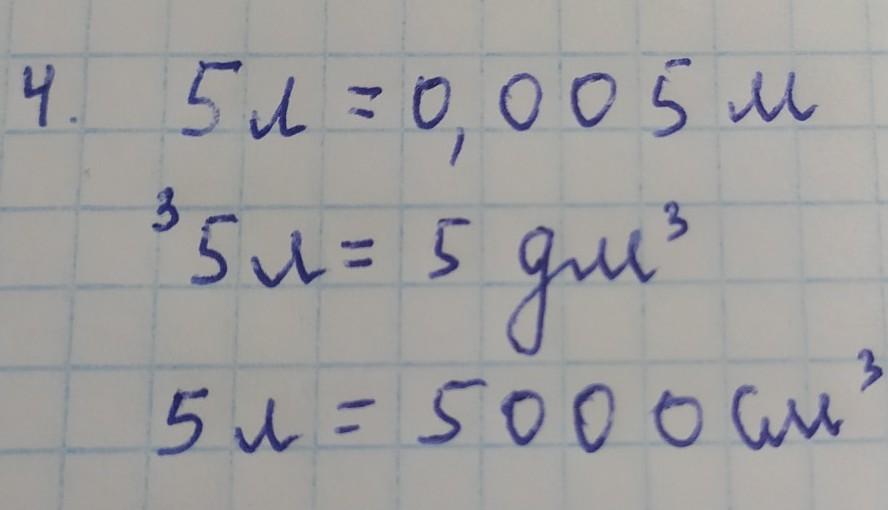 4. 5л = 0,005 м
³ 5л = 5 дм³
5л = 5000 см³